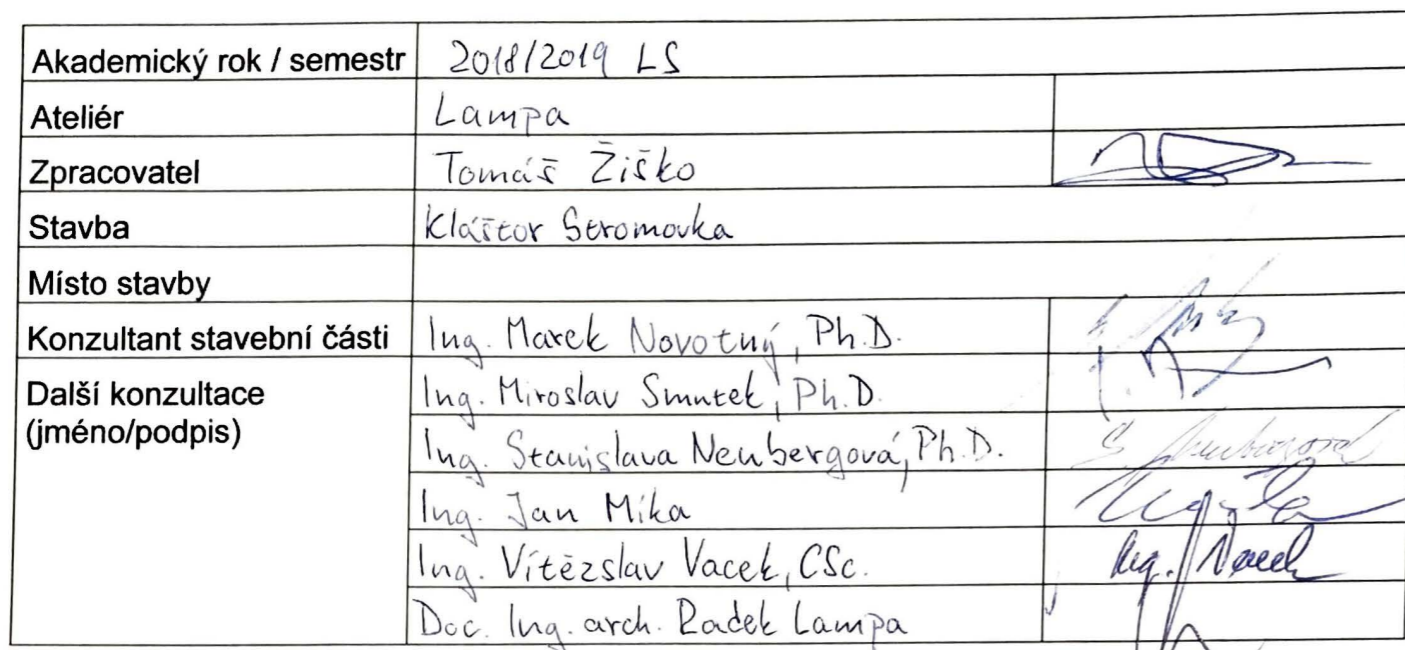 Akademický rok / semestr 2018/2019 LS
Ateliér Lampa
Zpracovatel Tomáš Žiško
Stavba Kláštor Stromovka
Místo stavby
Konzultant stavební části Ing. Marek Novotný, Ph.D.
Další konzultace Ing. Miroslav Smutek, Ph.D.
(jméno/podpis) Ing. Stanislava Neubergová, Ph.D.
Ing. Jan Míka
Ing. Vítězslav Vacek, CSc. Ing. Vacek
Doc. Ing. arch. Radek Lampa